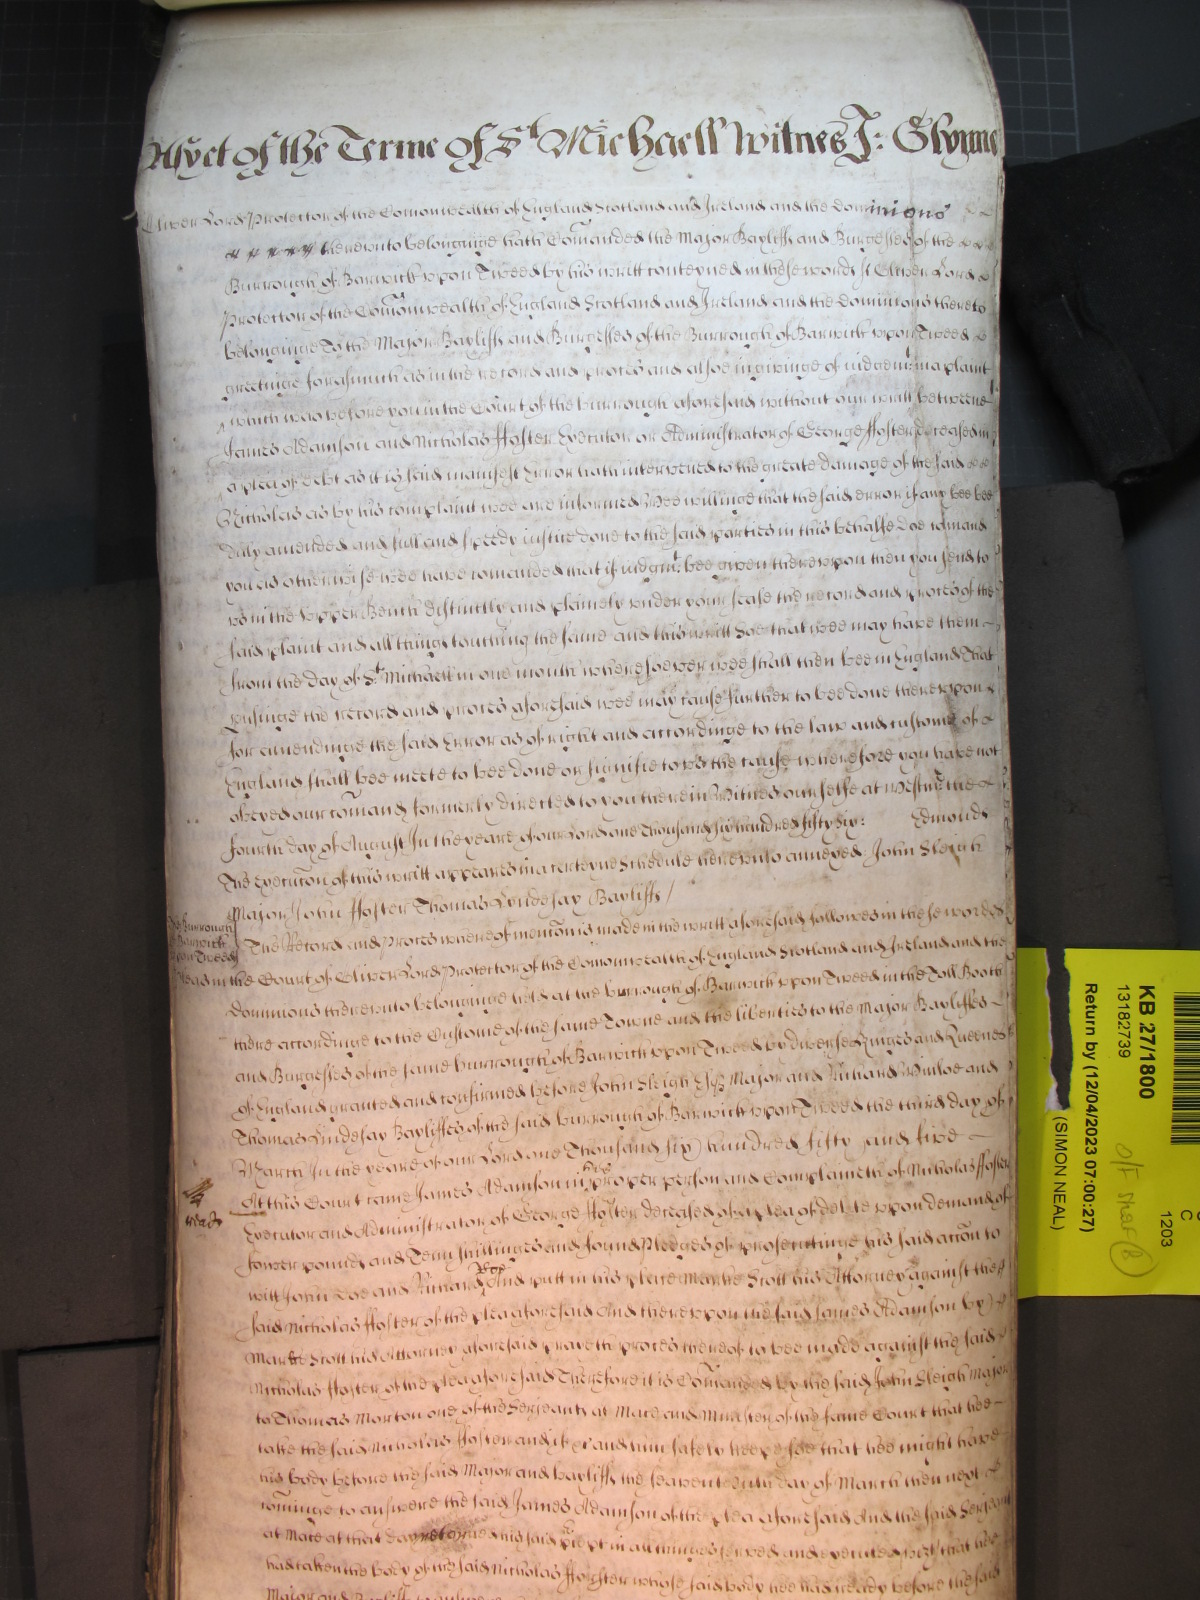 As yet of the Terme of St Michaell Witnes J: Glynne
Oliver Lord Protector of the Comonwealth of England Scotland and Ireland and the dominions
thereunto belonginge hath Comanded the Major Bayliffs and Burgesses of the
Burrough of Barwick upon Tweed by his writt conteyned in these words ss Oliver Lord
Protector of the Comonwealth of England Scotland and Ireland and the dominions thereto
belonginge To the Major Bayliffs and Burgesses of the Burrough of Barwick upon Tweed
greetinge forasmuch as in the record and proces and alsoe in givinge of judgemt in a plaint
which was before you in the Court of the burrough aforesaid without our writt betweene
James Adamson and Nicholas ffoster Executor or Administrator of George ffoster deceased in
a plea of debt as it is said manifest Error hath intervened to the greate damage of the said
Nicholas as by his complaint wee are informed Wee willinge that the said error if any bee bee
duly amended and full and speedy justice done to the said parties in this behalfe doe comand
you as otherwise wee have comanded that if judgmt bee given thereupon then you send to
us in the Upper Bench distinctly and plainely under your seale the record and proces of the
said plaint and all things touching the same and this writt Soe that wee may have them
from the day of St Michaell in one month wheresoever wee shall then bee in England That
perusinge the record and proces aforesaid wee may cause further to bee done thereupon
for amendinge the said Error as of right and accordinge to the law and custome of
England shall bee meete to bee done or signifie to us the cause wherefore you have not
obeyed our comand formerly directed to you therein Witnes ourselfe at Westmr the
fourth day of August In the yeare of our Lord one Thousand six hundred fifty six: Edmonds
The execution of this writt appeares in a certeyne Schedule hereunto annexed John Sleigh
Major John ffoster Thomas Lyndesay Bayliffs /
The Burrough of Barwick upon Tweed
The Record and proces whereof mention is made in the writt aforesaid followes in these wordes
Pleas in the Court of Oliver Lord Protector of the Comonwealth of England Scotland and Ireland and the
dominions thereunto belonginge held at the burrough of Barwick upon Tweed in the Toll Booth
there accordinge to the Custome of the same Towne and the liberties to the Major Bayliffes
and Burgesses of the same burrough of Barwick upon Tweed by diverse Kinges and Queenes
of England granted and confirmed before John Sleigh Esqr Major and Richard and
Thomas Lindesay Bayliffes of the said burrough of Barwick upon Tweed the third day of
March In the yeare of our Lord one Thousand six hundred fifty and five
At this Court came James Adamson in his proper person and Complaineth of Nicholas ffoster
Executor and Administrator of George ffoster deceased of a plea of debt upon demand of
fower pounds and Tenn shillinges and found Pledges of prosecutinge his said accon to
witt John Doe and Richard Roe And putt in his place Marke Scott his Attorney against the
said Nicholas ffoster of the plea aforesaid And thereupon the said James Adamson by
Marke Scott his Attorney aforesaid prayeth proces thereof to bee made against the said
Nicholas ffoster of the plea aforesaid Therefore it is Comanded by the said John Sleigh Major
to Thomas Morton one of the Serjeants at Mace and Minister of the same Court that hee
take the said Nicholas ffoster and him safely keepe soe that hee might have
his body before the said Major and bayliffs the seaventeenth day of March then next
cominge to answere the said James Adamson of the plea aforesaid And the said Serjeant
at Mace at that day retorned his said in all things served and executed that hee
had taken the body of the said Nicholas ffoster whose said body hee had ready before the said
Major and Bayliffs
KB 27/1800
13182739
Return by (12/04/2023 07:00:27)
(SIMON NEAL)
C
1203